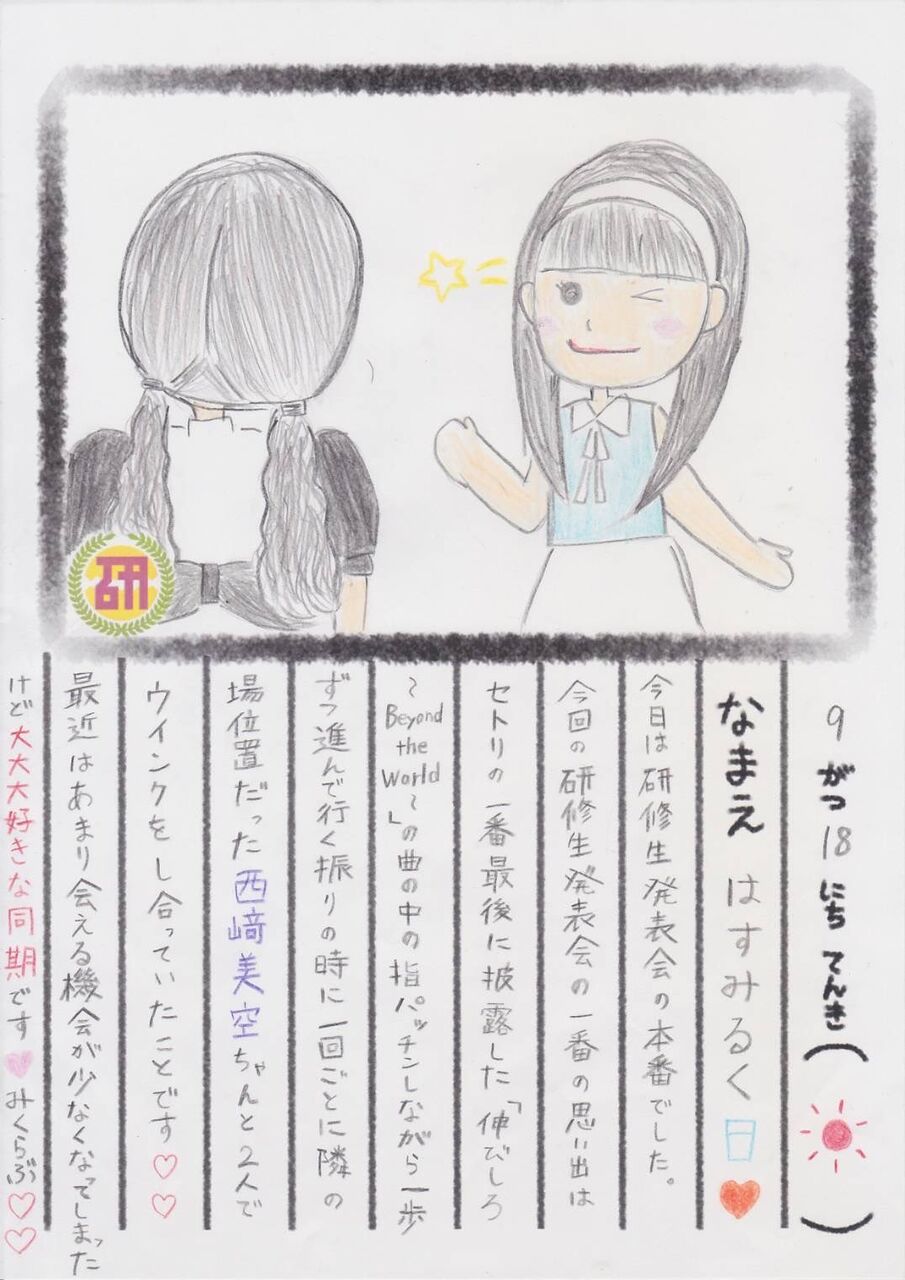 9がつ18にち てんき( )
なまえ はすみるく
今日は研修生発表会の本番でした。
今回の研修生発表会の一番の思い出は
セトリの一番最後に披露した「伸びしろ
～Beyond the World～」の曲の中の指パッチンしながら一歩
ずつ進んで行く振りの時に一回ごとに隣の
場位置だった西﨑美空ちゃんと2人で
ウインクをし合っていたことです♡♡
最近はあまり会える機会が少なくなってしまった
けど大大大好きな同期です♥みくらぶ♡♡
研